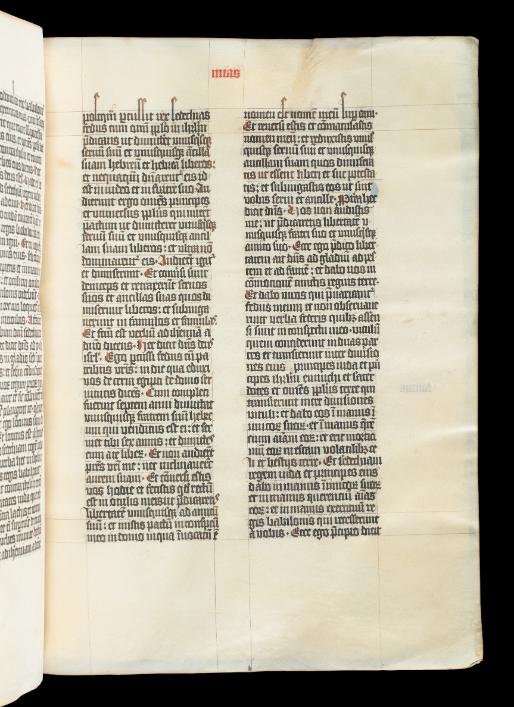 mias
postquam percussit rex sedechias
fedus cum omni populo in iherusalem
predicans ut dimitteret unusquisque
servum suum et unusquisque ancillam
suam hebreum et hebream liberos:
et nequaquam dominarentur eis id
est in iudeo et in fratre suo. Au
dierunt ergo omnes principes
et universus populus qui inierant
pactum ut dimitteret unusquisque
servum suum et unusquisque ancil
lam suam liberos: et ultra non
dominarentur eis. Audierunt igitur
et dimiserunt. Et conversi sunt
deinceps et retraxerunt servos
suos et ancillas suas quos di
miserant liberos: et subiuga
verunt in famulos et famulas.
Et factum est verbum domini ad iheremiam a
domino dicens. Hec dicit dominus deus
israel. Ego percussi fedus cum pa
tribus vestris: in die qua eduxi
vos de terra egipti de domo ser
vitutis dicens. Cum completi
fuerint septem anni dimittat
unusquisque fratrem suum hebreum
qui venditus est ei: et ser
viet tibi sex annis: et dimittes
eum a te liber. Et non audierunt
patres vestri me: nec inclinaverunt
aurem suam. Et conversi estis
vos hodie et fecistis quod rectum
est in oculis meis: ut predicaretis
libertatem unusquisque ad amicum
suum: et inistis pactum in conspectu
meo in domo in qua invocatum est
nomen meum super eam.
Et reversi estis et commaculastis
nomen meum: et reduxistis unus
quisque servum suum et unusquisque
ancillam suam quos dimisera
tis ut essent liberi et sue potesta
tis: et subiugastis eos ut sint
vobis servi et ancille. Propter hec
dicit dominus. Vos non audistis
me: ut predicaretis libertatem u
nusquisque fratri suo et unusquisque
amico suo. Ecce ego predico liber
tatem ait dominus ad gladium ad pes
tem et ad famem: et dabo vos in
commotionem cunctis regnis terre.
Et dabo viros qui prevaricantur
fedus meum et non observaverunt
verba federis quibus assen
si sunt in conspectu meo: vitulum
quem conciderunt in duas par
tes et transierunt inter divisio
nes eius: principes iuda et prin
cipes iherusalem eunuchi et sacer
dotes et omnis populus terre qui
transierunt inter divisiones
vituli: et dabo eos in manus in
imicorum suorum: et in manus queren
tium animam eorum: et erit mortici
num eorum in escam volatilibus ce
li et bestiis terre. Et sedechiam
regem iuda et principes eius
dabo in manus inimicorum suorum
et in manus querentium animas
eorum: et in manus exercituum re
gis babilonis qui recesserunt
a vobis. Ecce ego precipio dicit